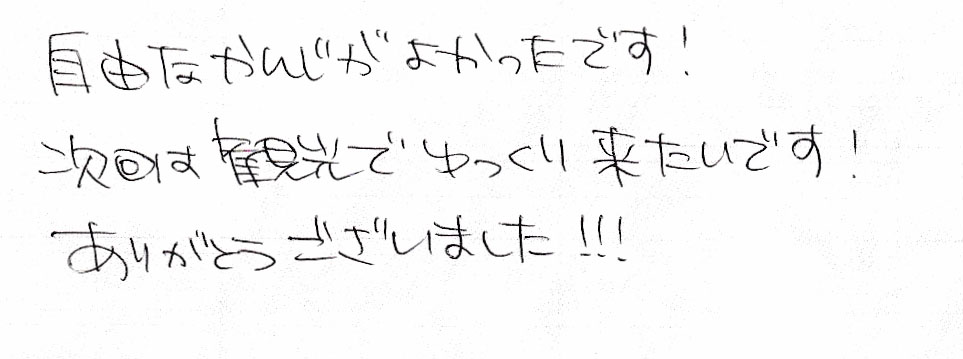 自由なかんじがよかったです!
次回は観光でゆっくり来たいです!
ありがとうございました!!!